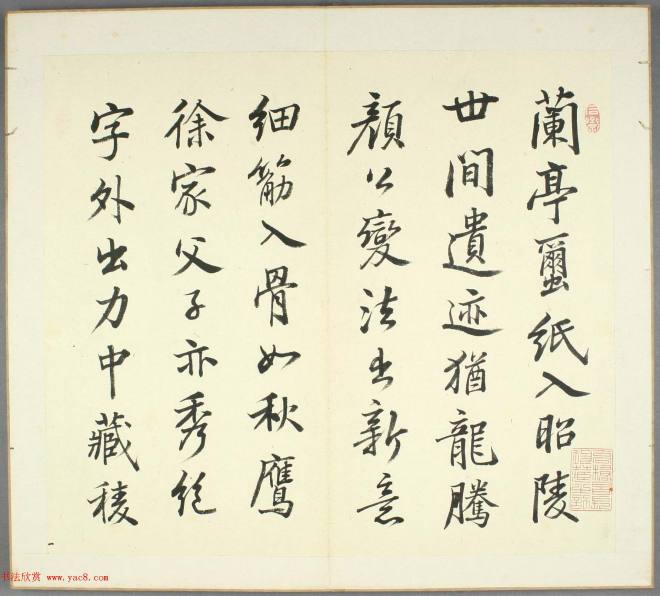 蘭亭蠒紙入昭陵
世間遺迹猶龍騰
顏公變法出新意
細筋入骨如秋鷹
徐家父子亦秀絕
字外出力中藏稜
书法欣赏 www.yac8.com